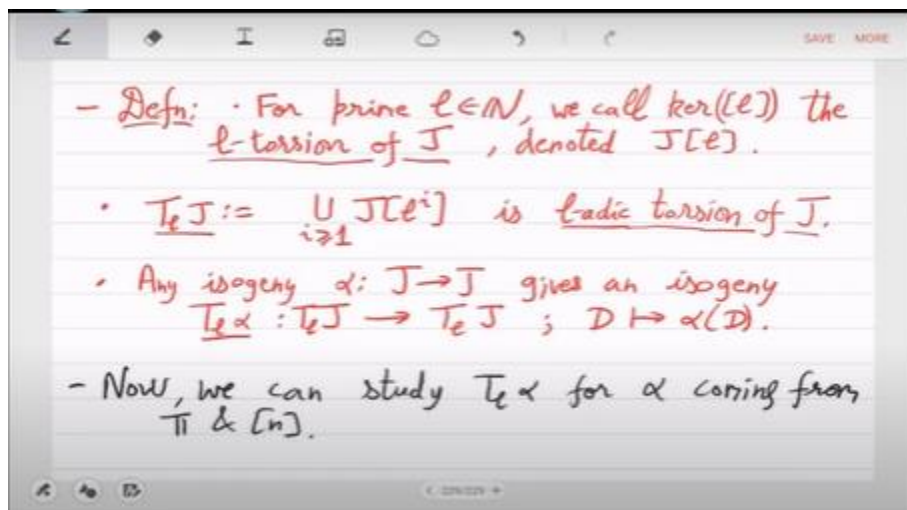 SAVE MORE
- Defn: · For prime l∈ℕ, we call ker([l]) the
l-torsion of J, denoted J[l].
· TₗJ := ⋃ J[lⁱ] is l-adic torsion of J.
i≥1
· Any isogeny α: J→J gives an isogeny
Tₗα : TₗJ → TₗJ ; D ↦ α(D).
- Now, we can study Tₗα for α coming from
π & [n].